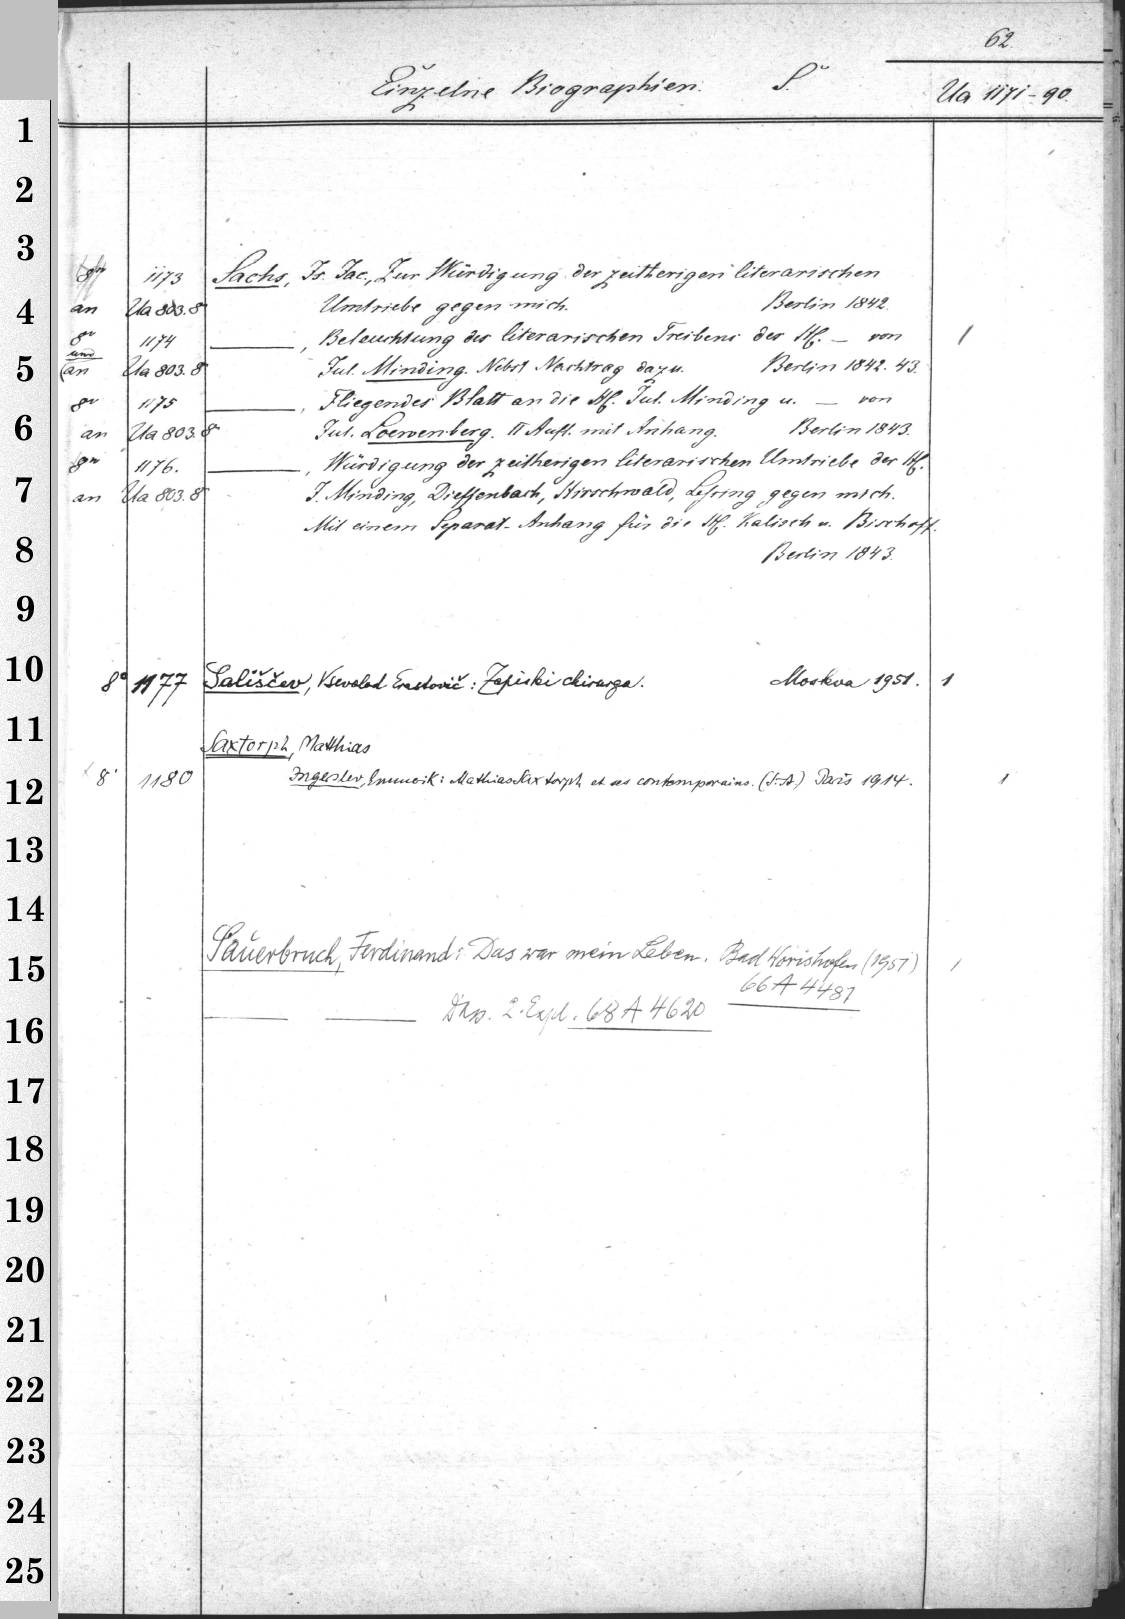 62.
Einzelne Biographien. S.
Ua 1171-90.
1
2
3
8° 1173 Sachs, Is. Jac., Zur Würdigung der zeitherigen literarischen
4 an Ua 803.8° Umtriebe gegen mich. Berlin 1842.
8° 1174 ———, Beleuchtung des literarischen Treibens des H. — von 1
und
5 (an Ua 803.8° Jul. Minding. Nebst Nachtrag dazu. Berlin 1842. 43.
8° 1175 ———, Fliegendes Blatt an die H. Jul. Minding u. — von
6 an Ua 803.8° Jul. Loewenberg. II Aufl. mit Anhang. Berlin 1843.
8° 1176. ———, Würdigung der zeitherigen literarischen Umtriebe der H.
7 an Ua 803.8° J. Minding, Dieffenbach, Hirschwald, Lessing gegen mich.
Mit einem Separat-Anhang für die H. Kalisch u. Bischoff.
8 Berlin 1843.
9
10 8° 1177 Sališčev, Vsevolod Erastovič: Zapiski chirurga. Moskva 1951. 1
11 Saxtorph, Matthias
12 8° 1180 Ingerslev, Emmerik: Mathias Saxtorph et ses contemporains. (S.-A.) Paris 1914. 1
13
14
15 Sauerbruch, Ferdinand: Das war mein Leben. Bad Wörishofen (1951) 1
66 A 4481
16 —— —— Dass. 2. Expl. 68 A 4620
17
18
19
20
21
22
23
24
25